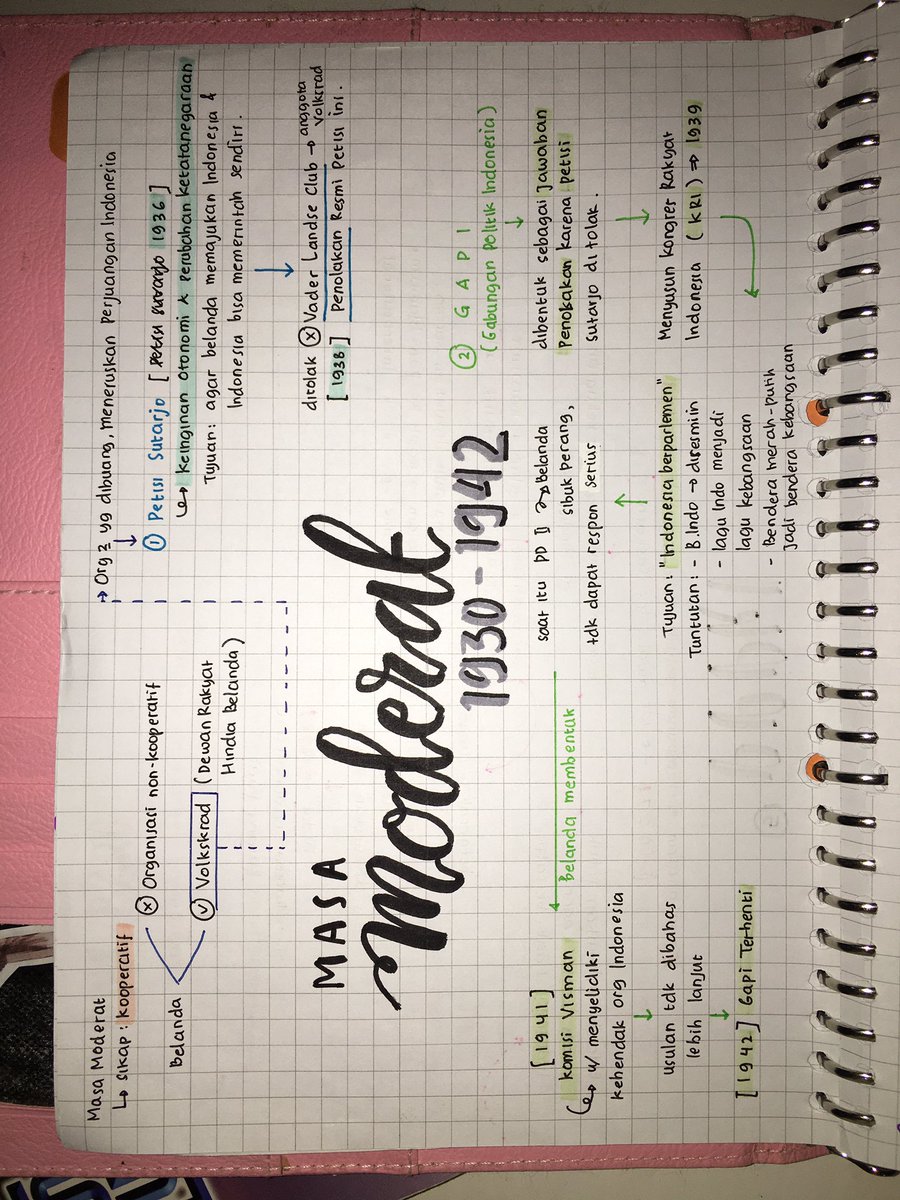 Masa Moderat
↳ sikap : kooperatif
Belanda
ⓧ Organisasi non-kooperatif
✓ Volkskrad (Dewan Rakyat
Hindia Belanda)
→ Org2 yg dibuang, meneruskan Perjuangan Indonesia
↓
① Petisi Sutarjo [ 1936 ]
↳ Keinginan Otonomi & Perubahan ketatanegaraan
Tujuan : agar belanda memajukan Indonesia &
Indonesia bisa memerintah sendiri.
↓
ditolak ⓧ Vader Landse Club → anggota
Volksrad
[1938] Penolakan Resmi Petisi ini.
MASA
Moderat
1930-1942
② G A P I
(Gabungan Politik Indonesia)
↓
dibentuk sebagai jawaban
Penokakan karena petisi
Sutarjo di tolak.
↓
Menyusun Kongres Rakyat
Indonesia (KRI) ⇒ 1939
Tujuan : "Indonesia berparlemen"
Tuntutan : - B.Indo → diresmiin
- lagu Indo menjadi
lagu kebangsaan
- Bendera merah-putih
jadi bendera kebangsaan
↑
saat itu PD II ↝ belanda
sibuk perang,
tdk dapat respon serius
Belanda membentuk
[1941]
Komisi Visman
↳ u/ menyelidiki
kehendak org Indonesia
↓
usulan tdk dibahas
lebih lanjut
↓
[1942] Gapi Terhenti